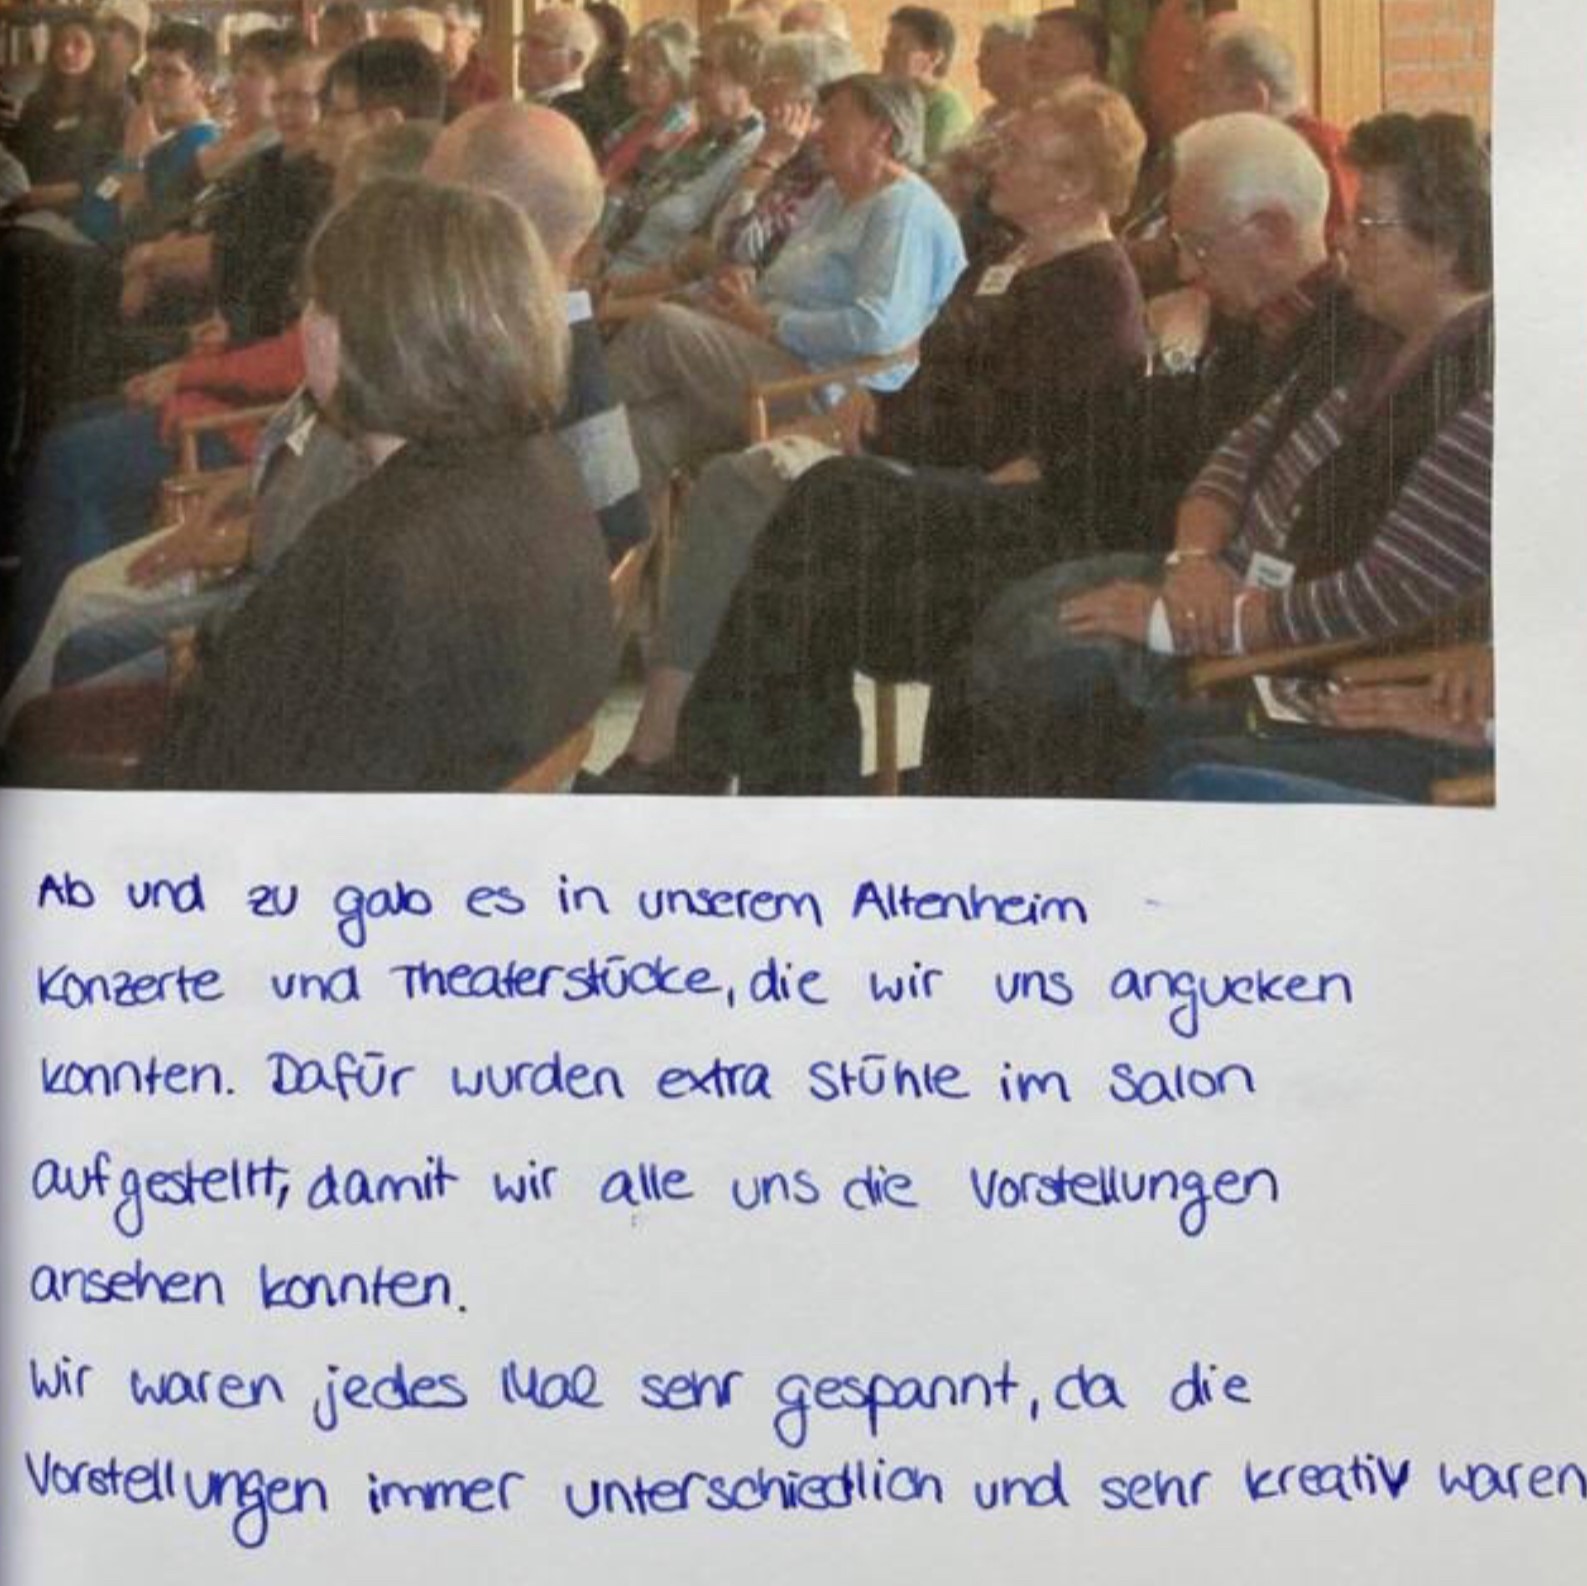 Ab und zu gab es in unserem Altenheim
Konzerte und Theaterstücke, die wir uns angucken
konnten. Dafür wurden extra Stühle im Salon
aufgestellt, damit wir alle uns die Vorstellungen
ansehen konnten.
Wir waren jedes Mal sehr gespannt, da die
Vorstellungen immer unterschiedlich und sehr kreativ waren